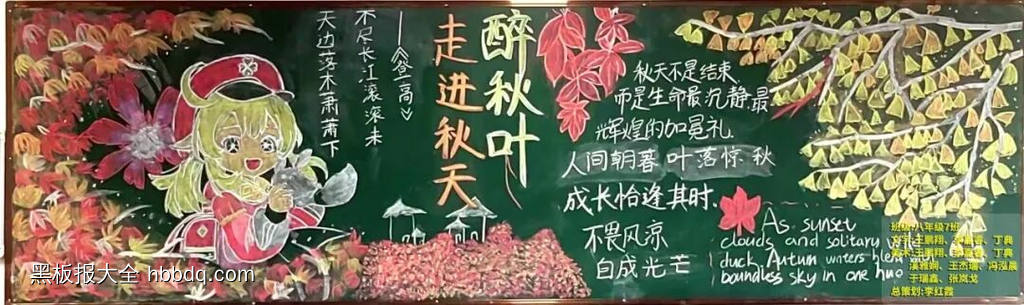 天边落木萧萧下
不尽长江滚滚来
——《登高》
醉秋叶
走进秋天
秋天不是结束
而是生命最沉静最
辉煌的加冕礼
人间朝暮 叶落惊秋
成长恰逢其时
不畏风凉
自成光芒
As sunset
clouds and solitary
duck, Autum waters
boundless sky in one hue
班级:八年级7班
王鹏翔、丁典
丁典
漠雅娴、王杰瑞、冯泓晨
于瑞鑫、张岚戈
总策划:李红霞
黑板报大全 hbbdq.com